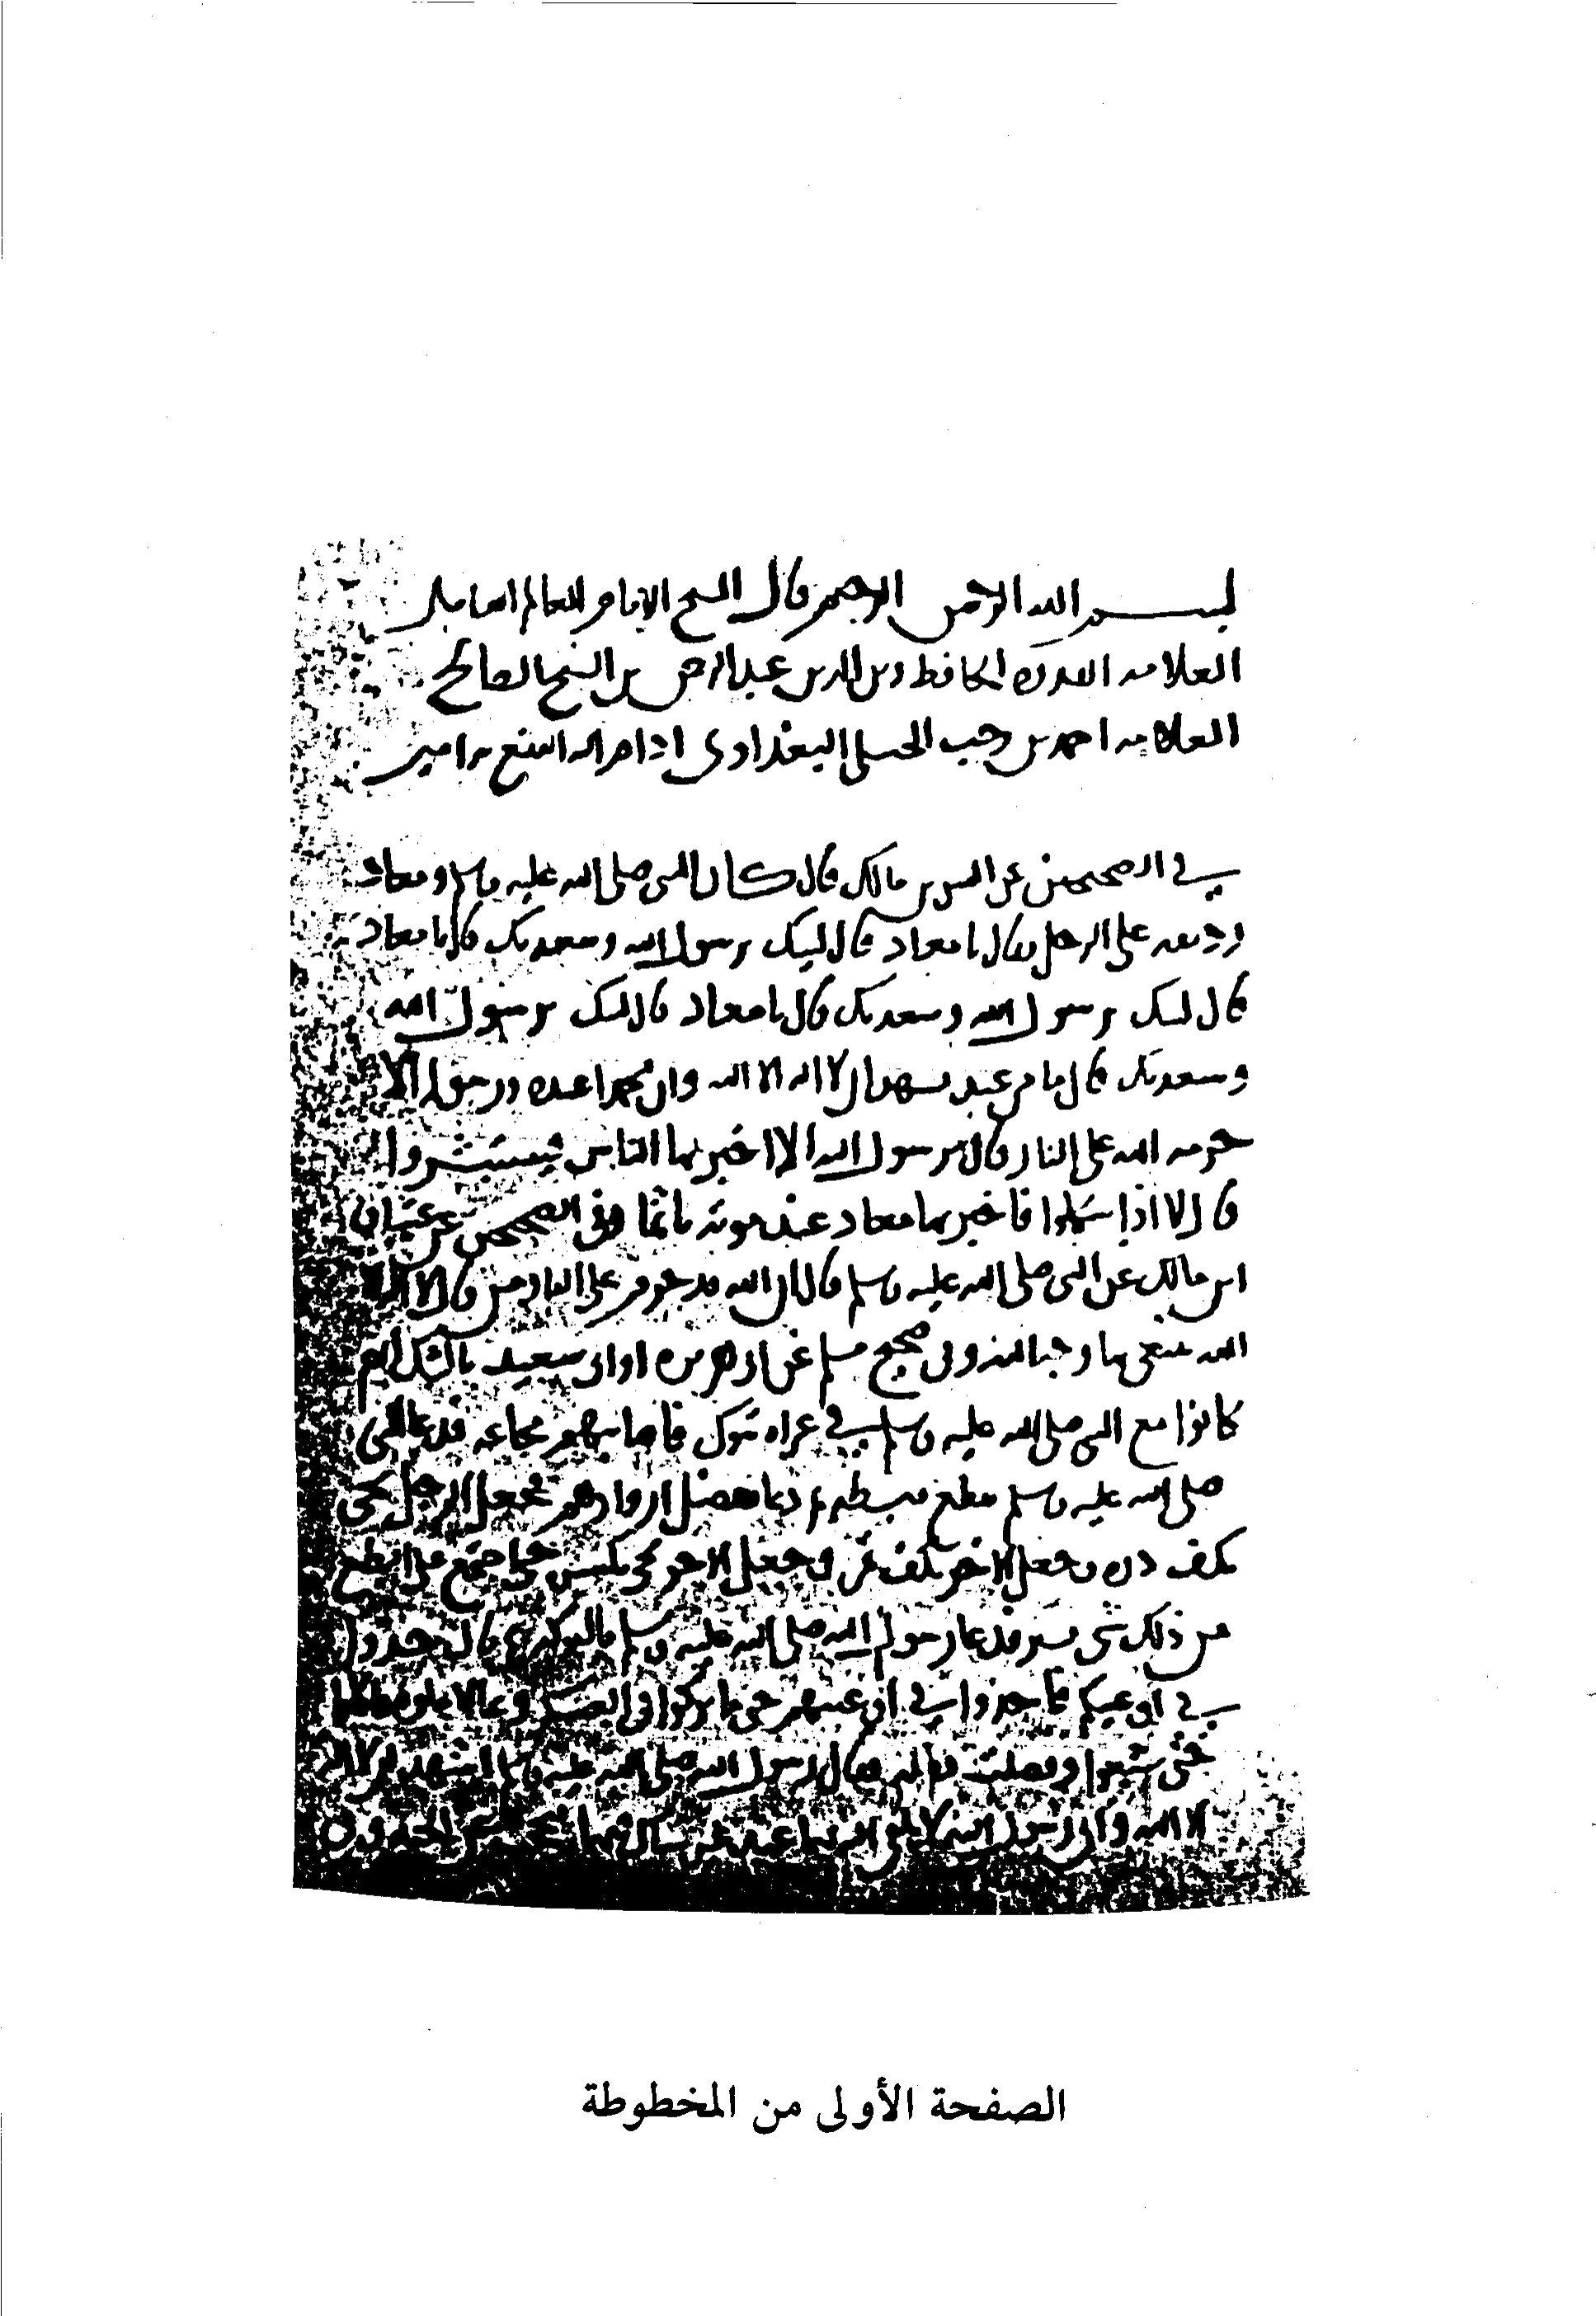 بسم الله الرحمن الرحيم قال الشيخ الإمام العالم العامل
العلامه القدوه الحافظ زين الدين عبد الرحمن بن الشيخ الصالح
العلامه احمد بن رجب الحنبلي البغدادي ادام الله النفع به امين
في الصحيحين عن انس بن مالك قال كان النبي صلى الله عليه وسلم ومعاذ
رديفه على الرحل فقال يا معاذ قال لبيك يرسول الله وسعديك قال يا معاذ
قال لبيك يرسول الله وسعديك قال يا معاذ قال لبيك يرسول الله
وسعديك قال ما من عبد يشهد ان لا اله الا الله وان محمدا عبده ورسوله الا
حرمه الله على النار قال يرسول الله الا اخبر بها الناس فيستبشروا
قال لا اذا يتكلوا فاخبر بها معاذ عند موته تأثما وفي الصحيحين عن عتبان
ابن مالك عن النبي صلى الله عليه وسلم قال ان الله قد حرم على النار من قال لا اله الا
الله يبتغي بها وجه الله وفي صحيح مسلم عن ابي هريره او ابي سعيد بالشك انهم
كانوا مع النبي صلى الله عليه وسلم في غزاه تبوك فاصابتهم مجاعه فدعا النبي
صلى الله عليه وسلم بنطع فبسطه ثم دعا بفضل ازوادهم فجعل الرجل يجي
بكف ذره وجعل الاخر بكف تمر وجعل الاخر يجي بكسره حتى اجتمع على النطع
من ذلك شي يسير فدعا رسول الله صلى الله عليه وسلم بالبركه ثم قال خذوا
في اوعيتكم فاخذوا في اوعيتهم حتى ما تركوا في العسكر وعا الا ملوه فاكلوا
حتى شبعوا وفضلت فضله فقال رسول الله صلى الله عليه وسلم اشهد ان لا اله
الا الله واني رسول الله لا يلقى الله بهما عبد غير شاك فيهما فيحجب عن الجنه
الصفحة الأولى من المخطوطة